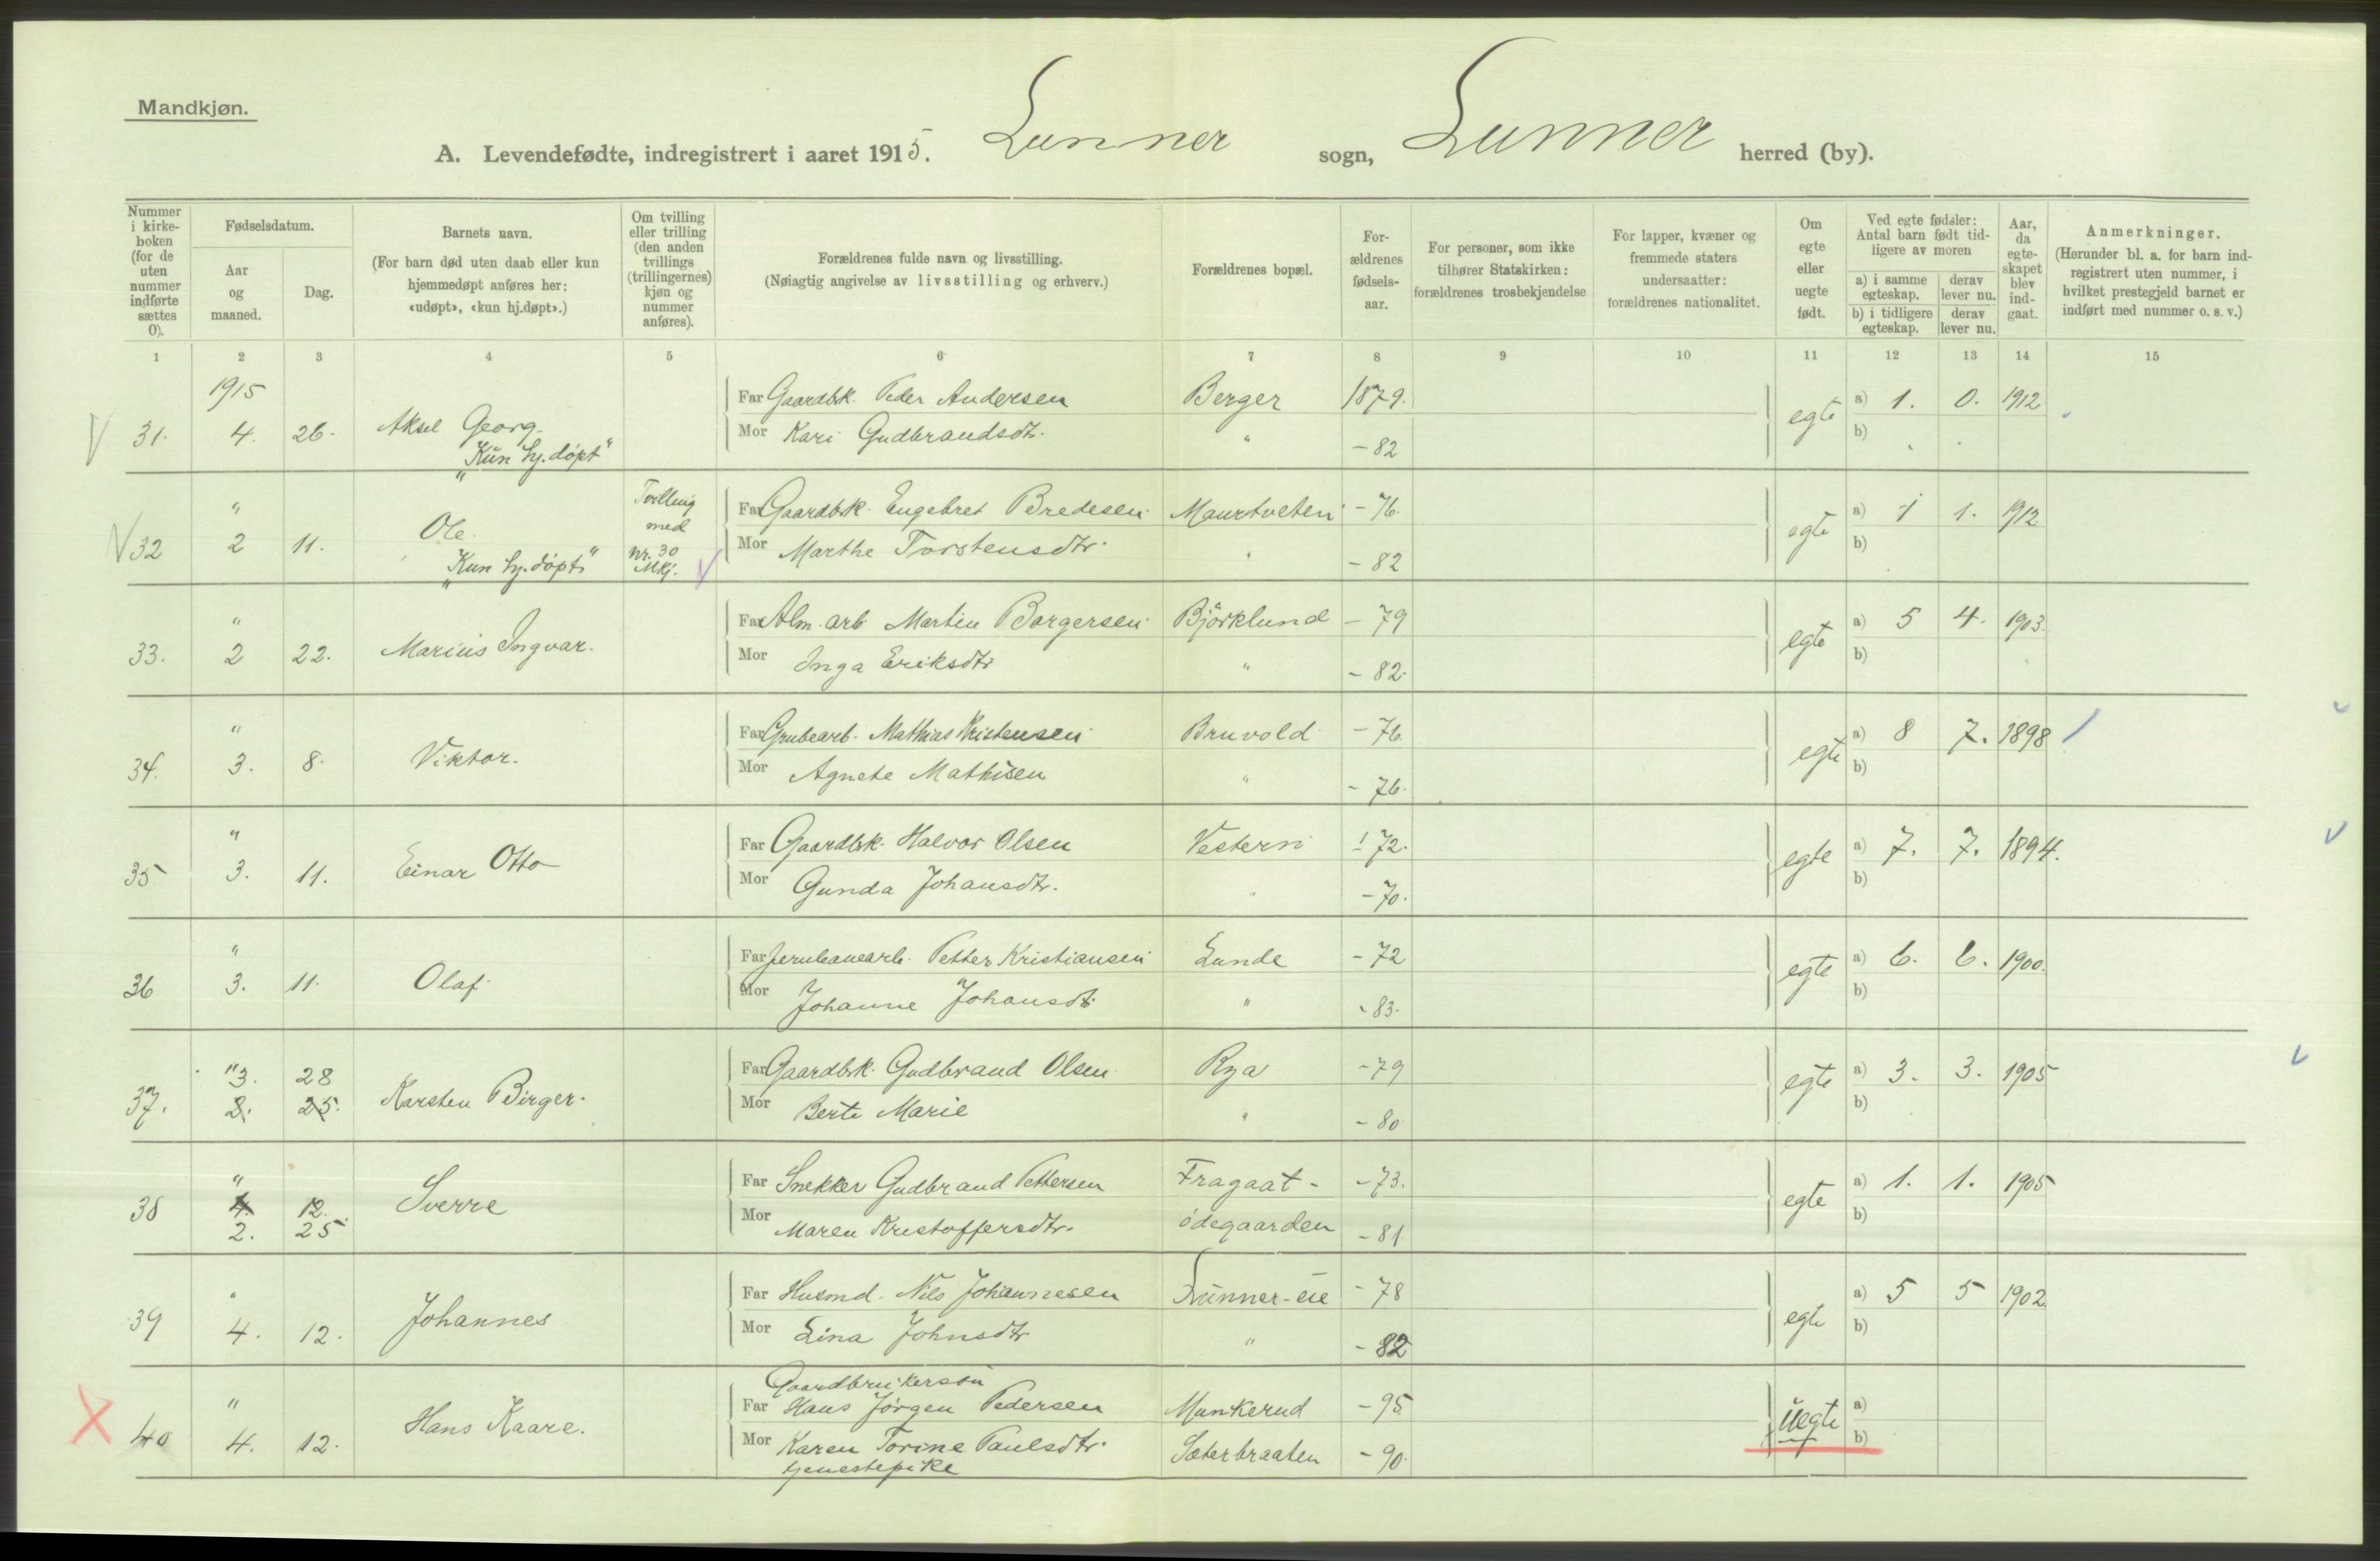 Mandkjøn.
A. Levendefødte, indregistrert i aaret 1915. Lunner sogn, Lunner herred (by).
Nummer i kirke-boken (for de uten nummer indførte sættes 0).
Fødselsdatum.
Aar og maaned.
Dag.
Barnets navn.
(For barn død uten daab eller kun hjemmedøpt anføres her: «udøpt», «kun hj.døpt».)
Om tvilling eller trilling (den anden tvillings (trillingernes) kjøn og nummer anføres).
Forældrenes fulde navn og livsstilling.
(Nøiagtig angivelse av livsstilling og erhverv.)
Forældrenes bopæl.
For-ældrenes fødsels-aar.
For personer, som ikke tilhører Statskirken: forældrenes trosbekjendelse
For lapper, kvæner og fremmede staters undersaatter: forældrenes nationalitet.
Om egte eller uegte født.
Ved egte fødsler: Antal barn født tid-ligere av moren
a) i samme egteskap. derav lever nu.
b) i tidligere egteskap. derav lever nu.
Aar, da egte-skapet blev ind-gaat.
Anmerkninger.
(Herunder bl. a. for barn ind-registrert uten nummer, i hvilket prestegjeld barnet er indført med nummer o. s. v.)
1 2 3 4 5 6 7 8 9 10 11 12 13 14 15
1915
Far Gaardbk. Peder Andersen Berger 1879. a) 1. 0. 1912
31. 4. 26. Aksel Georg. Mor Kari Gudbrandsdtr. " - 82 egte b)
"Kun hj. døpt"
" Tvilling med Far Gaardbk. Engebret Bredesen Maurtveten - 76. a) 1 1. 1912
32 2 11. Ole. nr. 30 Mkj. Mor Marthe Torstensdtr. " - 82 egte b)
"Kun hj. døpt"
" Far Alm. arb Martin Borgersen Björklund - 79 a) 5 4. 1903.
33. 2 22. Marius Ingvar. Mor Inga Eriksdtr " - 82. egte b)
" Far Grubearb. Mathias Kristensen Bruvold - 76 a) 8 7. 1898
34. 3. 8. Viktor. Mor Agnete Mathisen " - 76. egte b)
" Far Gaardbk. Halvor Olsen Vestern - 72. a) 7. 7. 1894.
35 3. 11. Einar Otto Mor Gunda Johansdtr. " - 70. egte b)
" Far Jernbanearb. Petter Kristiansen Lunde - 72 a) 6. 6. 1900.
36 3. 11. Olaf. Mor Johanne Johansdtr. " - 83. egte b)
" 3. 28 Far Gaardbk. Gudbrand Olsen Rya - 79 a) 3. 3. 1905
37. 2. 25. Karsten Birger. Mor Berte Marie " - 80 egte b)
" Far Snekker Gudbrand Pettersen Fragaat- - 73. a) 1. 1. 1905
38 4. 12. Sverre Mor Maren Kristoffersdtr. ødegaarden - 81. egte b)
2. 25
" Far Husmd. Nils Johannesen Lunner-eie - 78 a) 5 5 1902
39 4. 12. Johannes Mor Lina Johnsdtr " - 82 egte b)
Gaardbrukersøn
" Far Hans Jörgen Pedersen Munkerud - 95 a)
40 4. 12. Hans Kaare. Mor Karen Torine Paulsdtr. Sæterbraaten - 90. uegte b)
tjenestepike